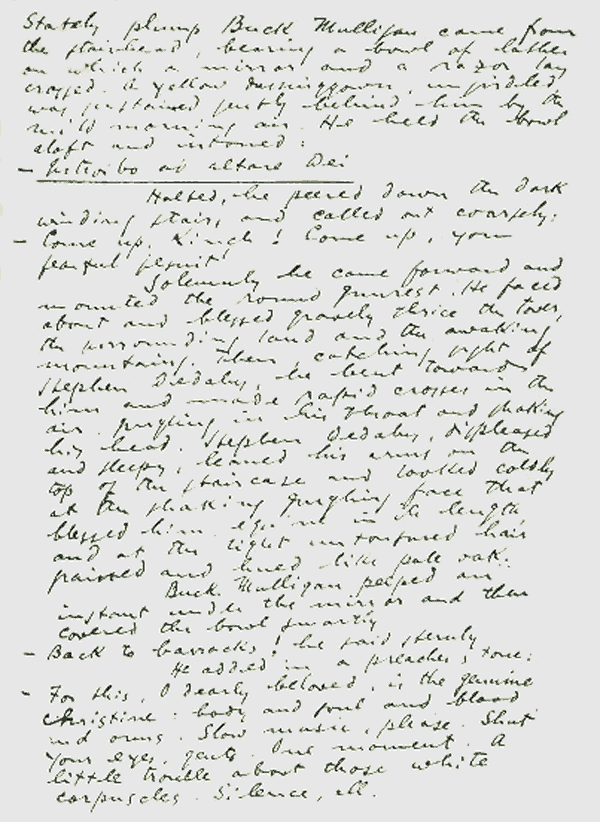 Stately plump Buck Mulligan came from
the stairhead, bearing a bowl of lather
on which a mirror and a razor lay
crossed. A yellow dressinggown, ungirdled
was sustained gently behind him by the
mild morning air. He held the bowl
aloft and intoned:
— Introibo ad altare Dei
Halted, he peered down the dark
winding stairs and called out coarsely:
— Come up, Kinch! Come up, you
fearful jesuit!
Solemnly he came forward and
mounted the round gunrest. He faced
about and blessed gravely thrice the tower,
the surrounding land and the awaking
mountains. Then, catching sight of
Stephen Dedalus, he bent towards
him and made rapid crosses in the
air, gurgling in his throat and shaking
his head. Stephen Dedalus, displeased
and sleepy, leaned his arms on the
top of the staircase and looked coldly
at the shaking gurgling face that
blessed him, equine in its length,
and at the light untonsured hair
grained and hued like pale oak.
Buck Mulligan peeped an
instant under the mirror and then
covered the bowl smartly
— Back to barracks! he said sternly
He added in a preacher's tone:
— For this, O dearly beloved, is the genuine
christine: body and soul and blood
and ouns. Slow music, please. Shut
your eyes, gents. One moment. A
little trouble about those white
corpuscles. Silence, all.